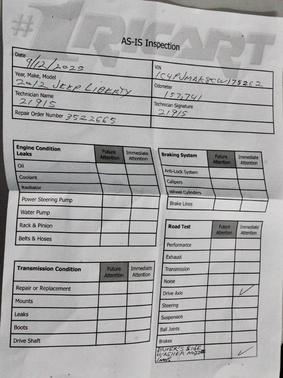 #1 RICART
AS-IS Inspection
Date 9/12/2025
VIN
Year, Make, Model 2012 JEEP LIBERTY
Odometer 157,741
Technician Name 21915
Technician Signature 21915
Repair Order Number 3522665
Engine Condition Leaks Future Attention Immediate Attention
Oil
Coolant
Radiator
Power Steering Pump
Water Pump
Rack & Pinion
Belts & Hoses
Braking System Future Attention Immediate Attention
Anti-Lock System
Calipers
Wheel Cylinders
Brake Lines
Transmission Condition Future Attention Immediate Attention
Repair or Replacement
Mounts
Leaks
Boots
Drive Shaft
Road Test Future Attention Immediate Attention
Performance
Exhaust
Transmission
Noise
Drive Axle ✓
Steering
Suspension
Ball Joints
Brakes
DRIVER'S SIDE ✓
WASHER